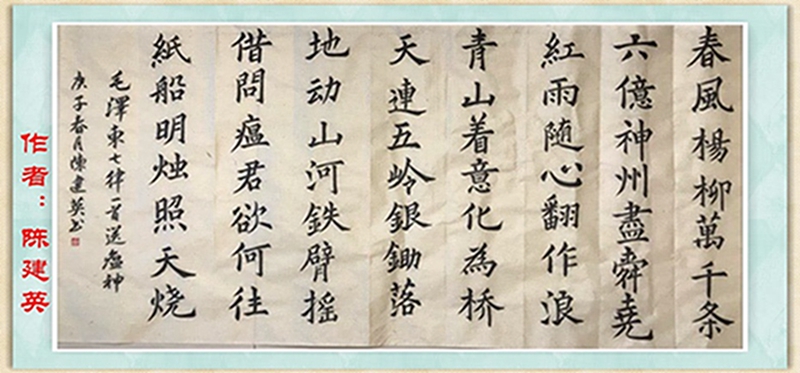 春風楊柳萬千条
六億神州盡舜堯
紅雨随心翻作浪
青山着意化為桥
天連五岭銀鋤落
地动山河鉄臂摇
借問瘟君欲何往
紙船明烛照天烧
毛澤東七律一首送瘟神
庚子春月陳建英书
作者：陈建英